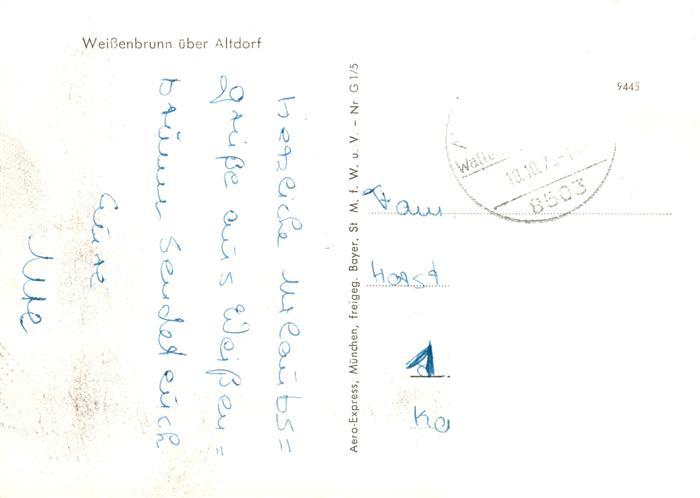 Weißenbrunn über Altdorf
herzliche Urlaubs=
grüße aus Weißen=
brunn sendet euch
Eure
Ute
Aero-Express, München, freigeg. Bayer. St M. f. W. u. V. – Nr G 1/5
9445
10.10.7
8503
Fam
Horst
1
Ka